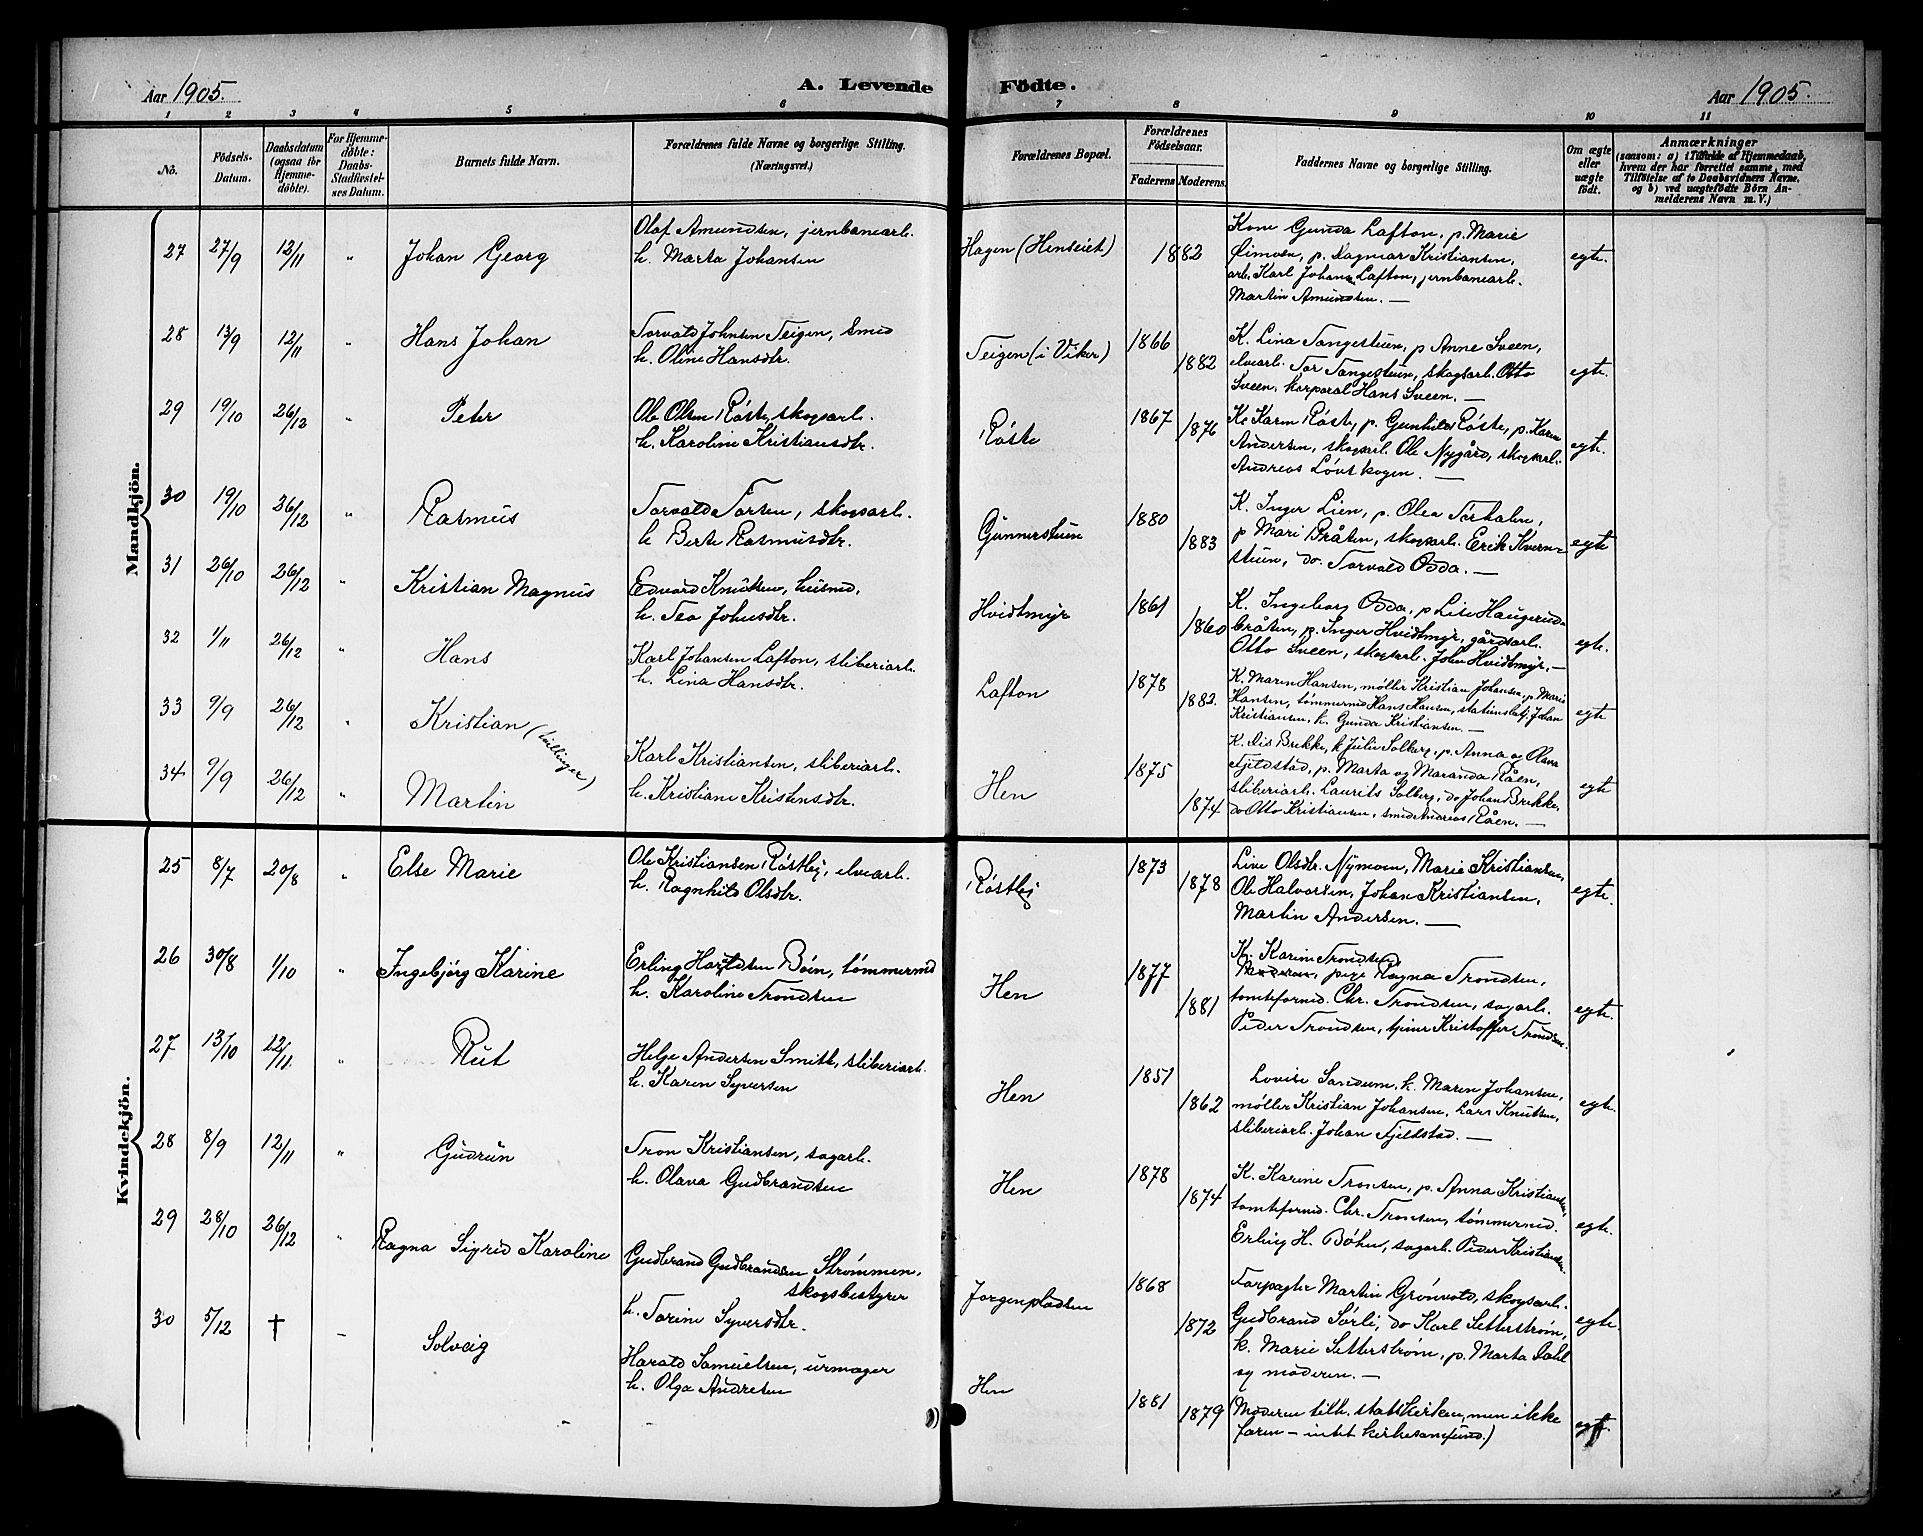 Aar 1905.
A. Levende Födte.
Aar 1905.
1 2 3 4 5 6 7 8 9 10 11
No.
Födsels-Datum.
Daabsdatum (ogsaa for Hjemmedöbte).
For Hjemmedöbte: Daabs-Stadfæstelses Datum.
Barnets fulde Navn.
Forældrenes fulde Navne og borgerlige Stilling. (Næringsvei.)
Forældrenes Bopæl.
Forældrenes Födselsaar.
Faderens. Moderens.
Faddernes Navne og borgerlige Stilling.
Om ægte eller uægte födt.
Anmærkninger
(saasom: a) i Tilfælde af Hjemmedaab, hvem der har forrettet samme, med Tilföielse af to Daabsvidners Navne, og b) ved uægtefödte Börn Anmelderens Navn m. V.)
Mandkjön.
27 27/9 12/11 " Johan Georg
Olaf Amundsen, jernbanearb.
h. Marta Johansen
Hagen (Henseiet) 1882
Kone Gunda Lafton, p. Marie
Eimoen, p. Dagmar Kristiansen,
arb. Karl Johans. Lafton, jernbanearb.
Martin Amundsen. —
egte.
28 13/9 12/11 " Hans Johan
Torvald Johnsen Teigen, smed
h. Oline Hansdtr.
Teigen (i Viker) 1866 1882
K. Lina Tangestuen, p Anne Sveen,
elvearb. Tor Tangestuen, skogsarb. Otto
Sveen, korporal Hans Sveen. —
egte.
29 19/10 26/12 " Peter
Ole Olsen Røste, skogsarb.
h. Karoline Kristiansdtr.
Røste 1867 1876
K. Karen Røste, p. Gunhild Røste, p. Karen
Andersen, skogsarb. Ole Nygård, skogsarb.
Andreas Løvskogen. —
egte.
30 19/10 26/12 " Rasmus
Torvald Torsen, skogsarb.
h Berte Rasmusdtr.
Gunnerstuen 1880 1883
K. Inger Lien, p. Olea
p Mari Bråten, skogsarb. Erik Kvern-
stuen, do. Torvald Odda. —
egte
31 26/10 26/12 " Kristian Magnus
Edvard Knutsen, husmd,
h. Tea Johnsdtr.
Hvidtmyr 1861 1860
K. Ingeborg Odda, p Lise Haugerud-
bråten, p. Inger Hvidtmyr, gårdsarb.
Otto Sveen, skogsarb. John Hvidtmyr. —
egte.
32 1/11 26/12 " Hans
Karl Johansen Lafton, sliberiarb.
h. Lina Hansdtr.
Lafton 1878 1882.
K. Maren Hansen, møller Kristian Johansen, p. Marie
Hansen, tømmermd Hans Hansen, stationsbetj. Johan
Kristiansen, k. Gunda Kristiansen. —
egte
33 9/9 26/12 " Kristian (tvillinger)
34 9/9 26/12 " Martin
Karl Kristiansen, sliberiarb.
h. Kristiane Kristensdtr.
Hen 1875 1874
K. Dis Brekke, k Julie Solberg, p. Anna og Olava
Fjeldstad, p. Marta og Maranda Råen,
sliberiarb. Laurits Solberg, do Johan Brekke,
do Otto Kristiansen, smed Andreas Råen. —
egte
Kvindekjön.
25 8/7 20/8 " Else Marie
Ole Kristiansen Røstlej, elvearb.
h. Ragnhild Olsdtr.
Røstlej 1873 1878
Live Olsdtr. Nymoen, Marie Kristiansen,
Ole Halvorsen, Johan Kristiansen,
Martin Andersen. —
egte.
26 30/8 1/10 " Ingebjørg Karine
Erling Haraldsen Bøen, tømmermd
h. Karoline Trondsen
Hen 1877 1881
K. Karine Trondsen
Moderen, pige Ragna Trondsen,
tomteformd. Chr. Trondsen, sagarb.
Peder Trondsen, tjener Kristoffer Trondsen.
egte.
27 13/10 12/11 " Rut
Helge Andersen Smith, sliberiarb.
h. Karen Syversen
Hen 1851 1862
Lovise Sandum, k. Maren Johansen,
møller Kristian Johansen, Lars Knutsen,
sliberiarb. Johan Fjeldstad. —
egte.
28 8/9 12/11 " Gudrun
Tron Kristiansen, sagarb.
h. Olava Gudbrandsen
Hen 1878 1874
K. Karine Tronsen, p. Anna Kristiansen,
tomteformd. Chr. Tronsen, tømmermd.
Erling H. Bøhn, sagarb. Peder Kristiansen.
egte.
29 28/10 26/12 " Ragna Sigrid Karoline
Gudbrand Gudbrandsen Strømmen,
skogsbestyrer
h. Torine Syversdtr.
Jørgenpladsen 1868 1872
Forpagter Martin Grønvold, skogsarb.
Gudbrand Sørli, do Karl Setterstrøm,
k. Marie Setterstrøm, p. Marta Dahl
og moderen. —
egte.
30 5/12 † – Solveig
Harald Samuelsen, urmager
h. Olga Andresen
Hen 1881 1879
(Moderen tilh. statskirken, men ikke
faren – intet kirkesamfund.)
egte.